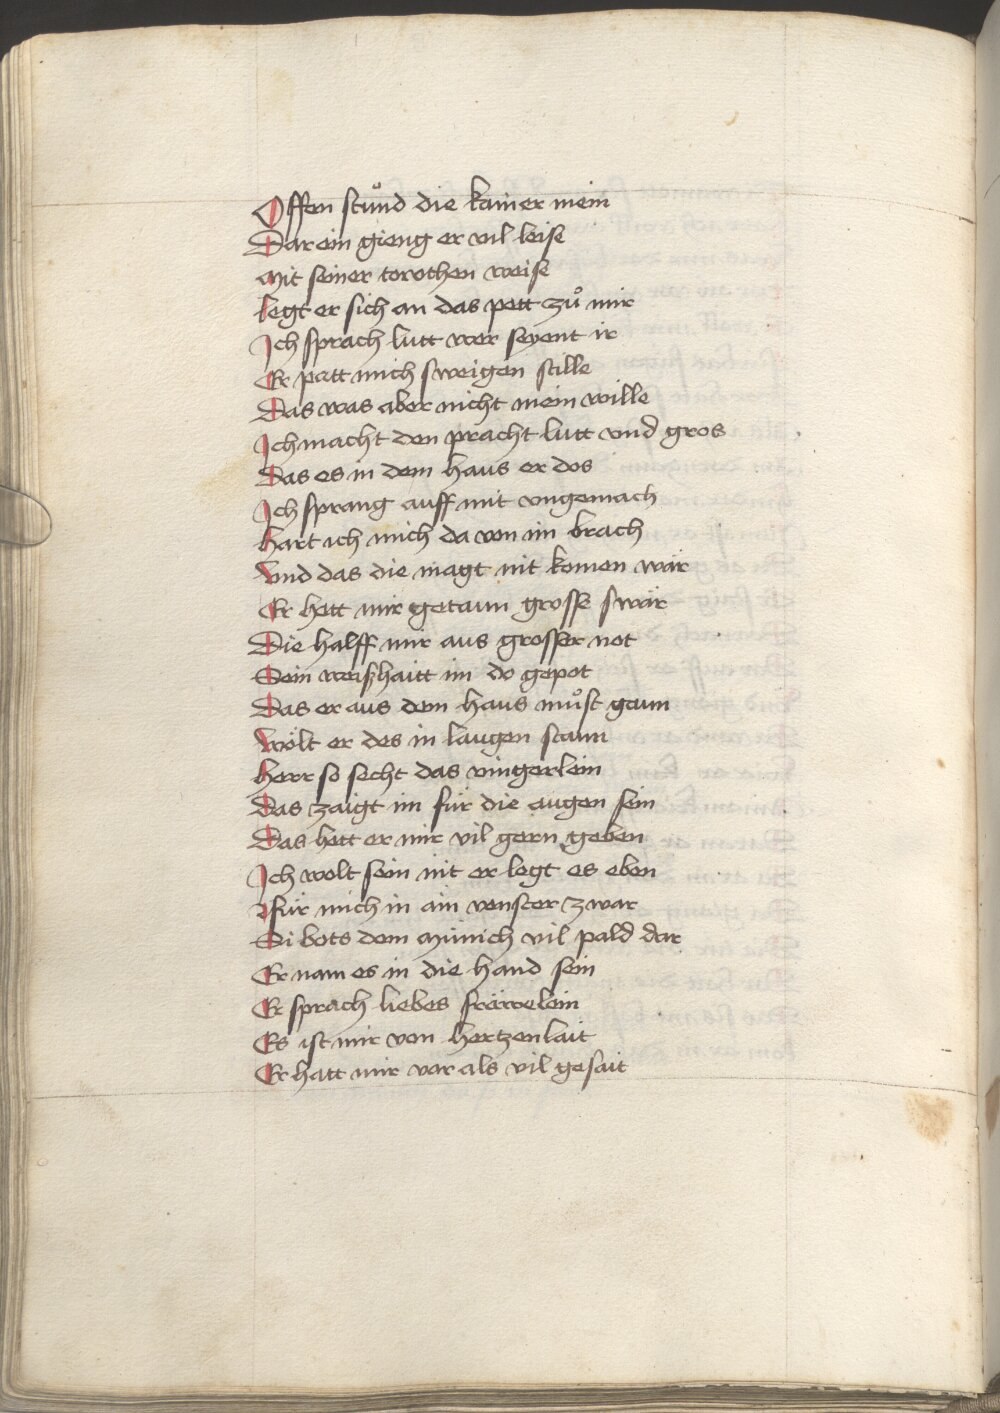 Offen stuͦnd die kamer mein
Dar ein gieng er vil leise
Mit seiner torothen weise
Legt er sich an das pett zuͦ mir
Ich sprach lutt wer seyent ir
Er patt mich sweigen stille
Das was aber nicht mein wille
Ich macht den pracht lutt vnd gros
Das es in dem haus er dos
Ich sprang auff mit vngemach
Hart ich mich da von im brach
Vnd das die magt nit komen wär
Er hett mir getaun grosse swär
Die halff mir aus grosser not
Sein weißhaitt im do gepot
Das er aus dem haus muͦst gaun
Wölt er des in laugen staun
Herr so secht das vingerlein
Das zaigt im für die augen sein
Das hett er mir vil gern geben
Ich wolt sein nit er legt es eben
Für mich in ain venster zwar
Si bots dem münich vil pald dar
Er nam es in die hand sein
Er sprach liebes fräwelein
Es ist mir von hertzen lait
Er hatt mir vor als vil gesait